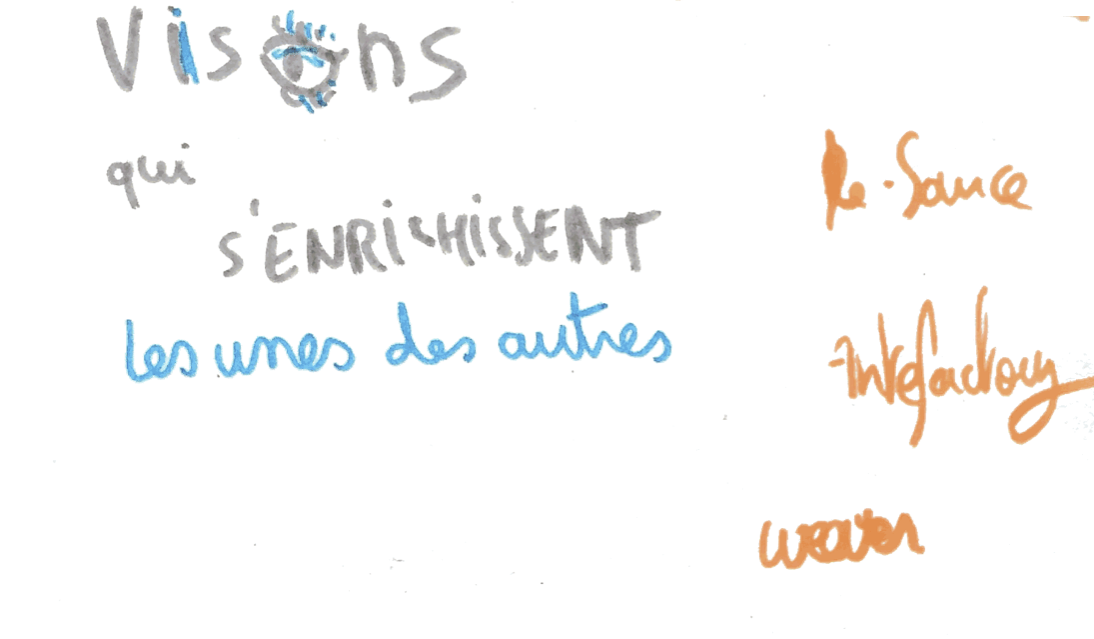 Visons
qui
s'ENRiCHiSSENT
les unes des autres
Re-Source
Intefactory
weaver